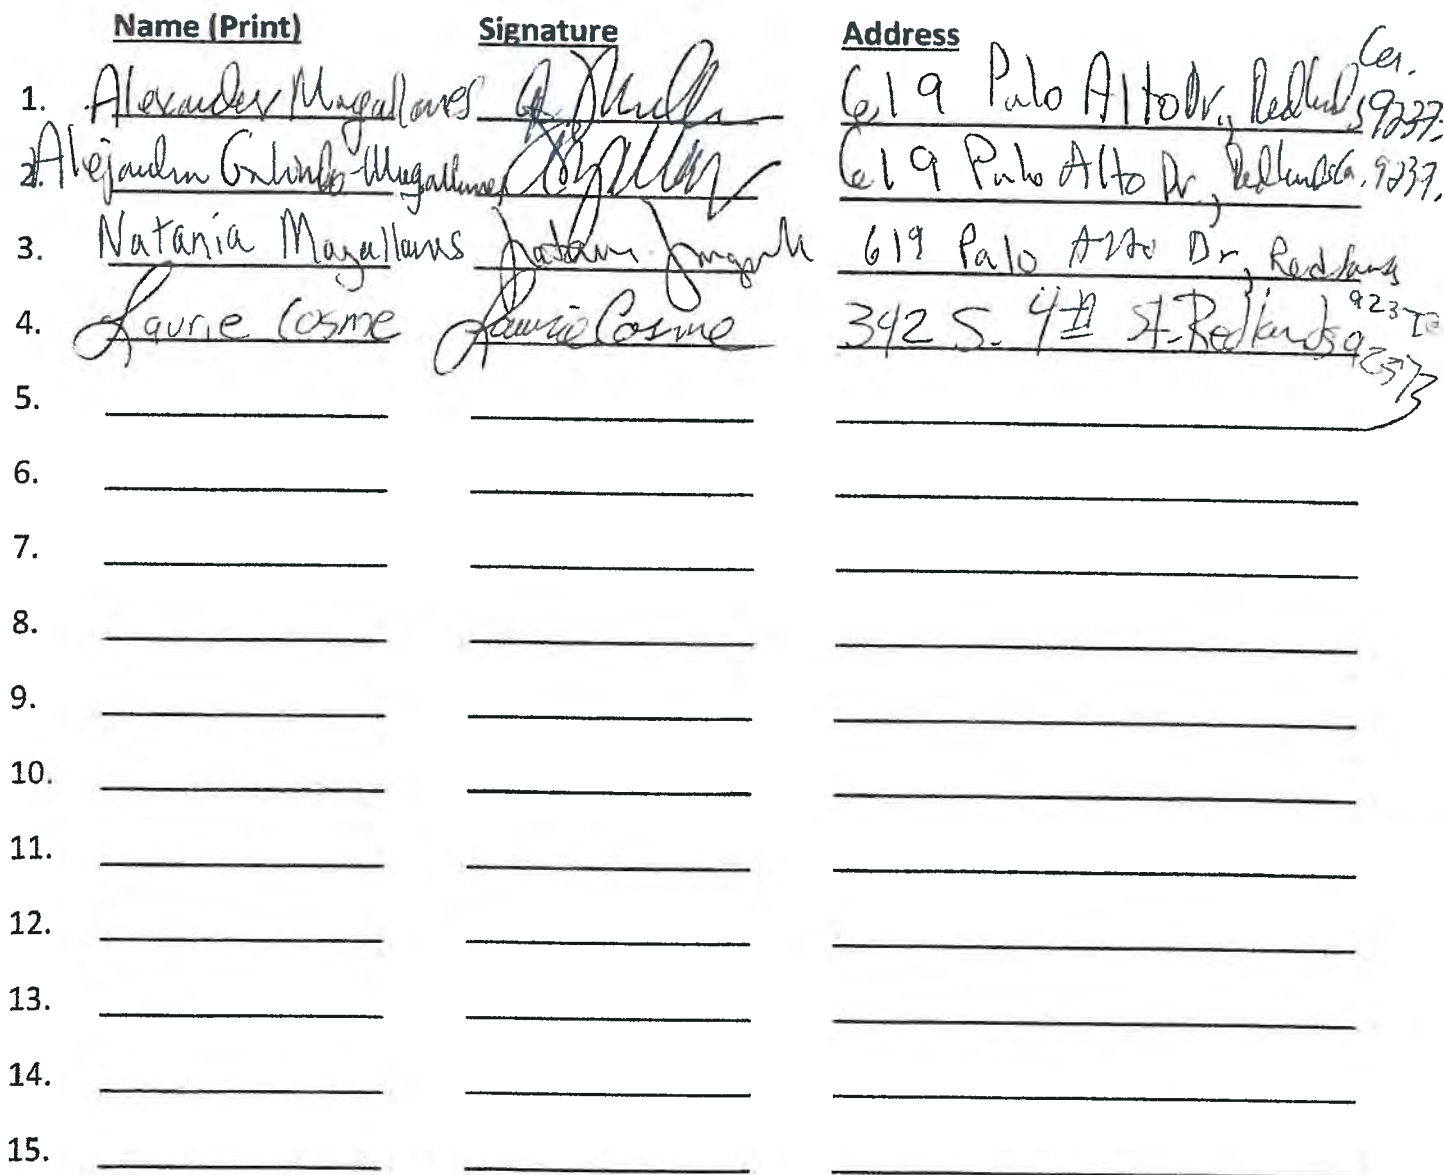 Name (Print) Signature Address
1. Alexander Magallanes 619 Palo Alto Dr., Redlands Ca. 9237
2. Alejandra Galindo-Magallanes 619 Palo Alto Dr., Redlands Ca. 9237
3. Natania Magallanes 619 Palo Alto Dr, Redlands 9237
4. Laurie Cosme Laurie Cosme 342 S. 4th St. Redlands 92373
5.
6.
7.
8.
9.
10.
11.
12.
13.
14.
15.